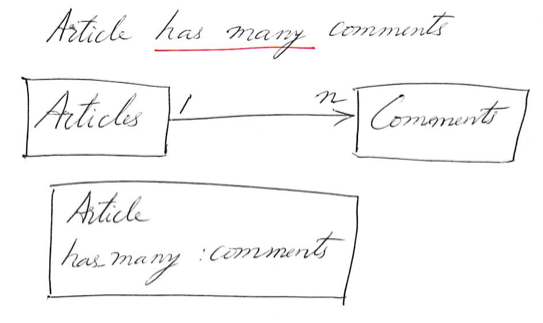 Article has many comments
Articles 1 n Comments
Article
has many :comments